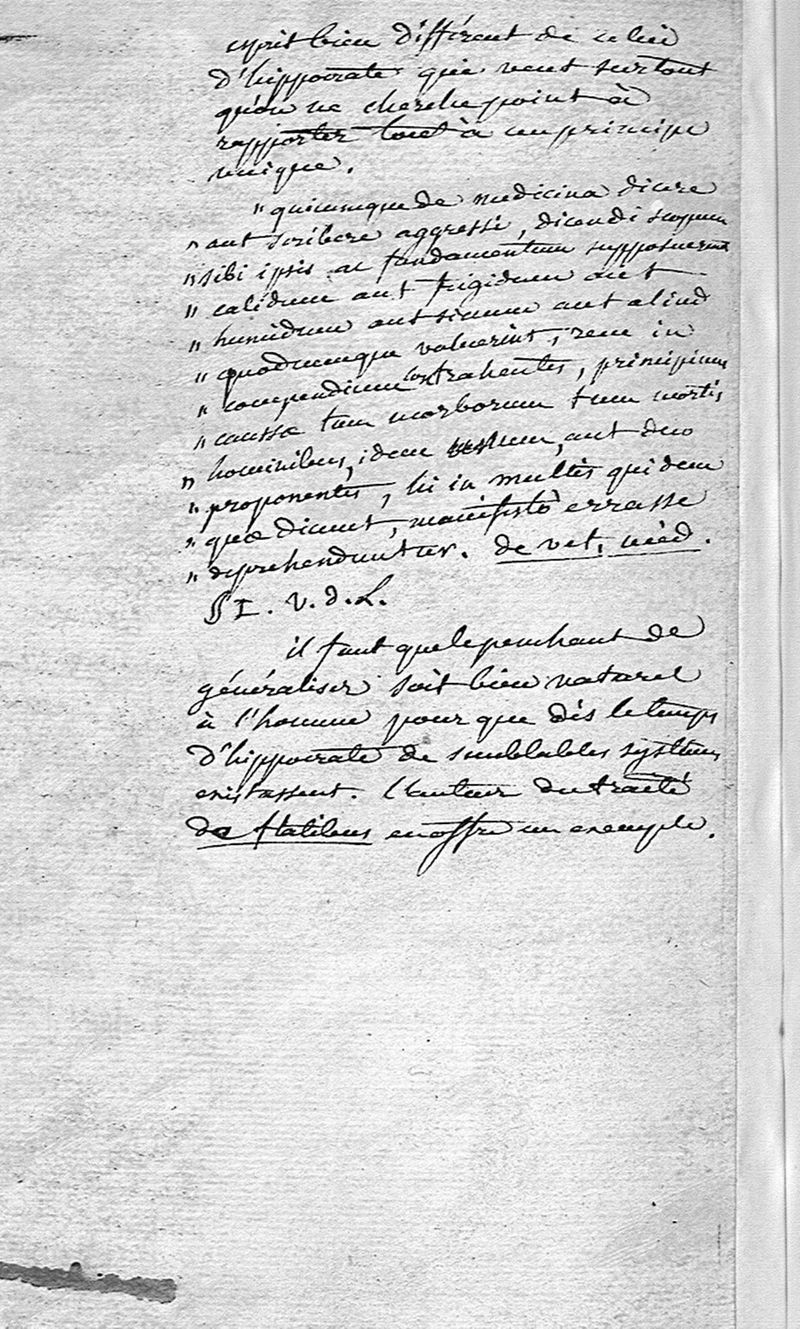 esprit bien différent de celui
d'hippocrate qui veut surtout
qu'on ne cherche point à
rapporter tout à un principe
unique.
" quicumque de medicina dicere
" aut scribere aggressi, dicendi
" sibi ipsis ac fundamentum supposuerunt
" calidum aut frigidum aut
" humidum aut siccum aut aliud
" quodcumque voluerint, rem in
" compendium contrahentes, principium
" caussæ tum morborum tum mortis
" hominibus, idem aut duo
" proponentes, hi in multis quidem
" quæ dicunt, manifesto errasse
" deprehenduntur. de vet. med.
§ I. v. d. L.
il faut que le penchant de
généraliser soit bien naturel
à l'homme pour que dès le temps
d'hippocrate de semblables systemes
existassent. l'auteur du traité
de flatibus en offre un exemple.